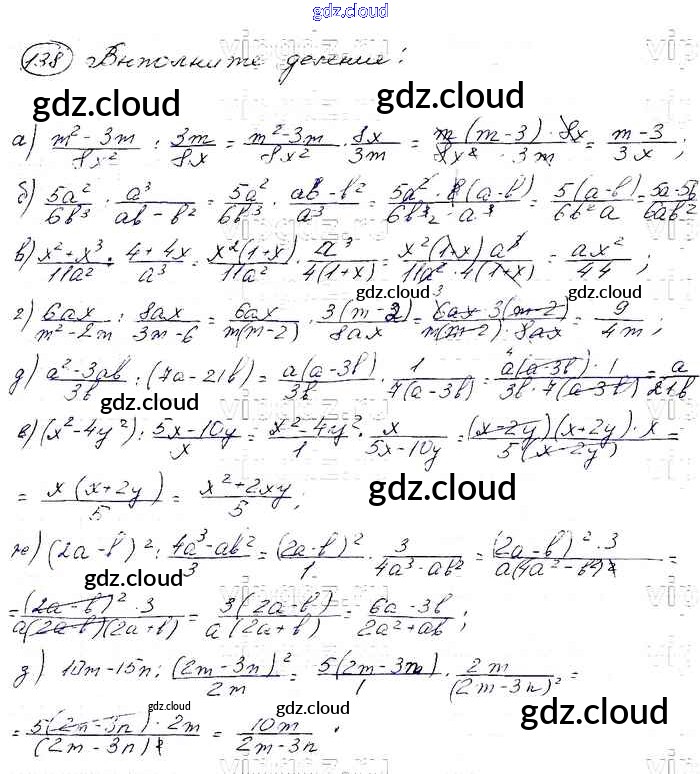 gdz.cloud
138 Выполните деление:
gdz.cloud gdz.cloud
а) (m² - 3m)/(8x²) : 3m/(8x) = (m² - 3m)/(8x²) · 8x/(3m) = (m(m-3) · 8x)/(8x² · 3m) = (m-3)/(3x);
б) 5a²/(6b³) : a³/(ab - b²) = 5a²/(6b³) · (ab - b²)/a³ = (5a² · b(a-b))/(6b³ · a³) = 5(a-b)/(6b²a) = (5a-5b)/(6ab²)
в) (x² + x³)/(11a²) : (4 + 4x)/a³ = x²(1+x)/(11a²) · a³/(4(1+x)) = (x²(1+x)a³)/(11a² · 4(1+x)) = ax²/44;
gdz.cloud gdz.cloud
г) 6ax/(m² - 2m) : 8ax/(3m-6) = 6ax/(m(m-2)) · 3(m-2)/(8ax) = (6ax · 3(m-2))/(m(m-2) · 8ax) = 9/(4m);
д) (a² - 3ab)/(3b) : (7a - 21b) = a(a-3b)/(3b) · 1/(7(a-3b)) = (a(a-3b) · 1)/(3b · 7(a-3b)) = a/(21b)
gdz.cloud
е) (x² - 4y²) : (5x-10y)/x = (x² - 4y²)/1 · x/(5x-10y) = ((x-2y)(x+2y) · x)/(5(x-2y)) =
= x(x+2y)/5 = (x² + 2xy)/5;
gdz.cloud
ж) (2a-b)² : (4a³ - ab²)/3 = (2a-b)²/1 · 3/(4a³ - ab²) = ((2a-b)² · 3)/(a(4a² - b²)) =
gdz.cloud
= ((2a-b)² · 3)/(a(2a-b)(2a+b)) = 3(2a-b)/(a(2a+b)) = (6a-3b)/(2a²+ab);
з) 10m-15n : (2m-3n)²/(2m) = 5(2m-3n)/1 · 2m/(2m-3n)² =
gdz.cloud gdz.cloud gdz.cloud
= (5(2n-3n) · 2m)/(2m-3n)² = 10m/(2m-3n).